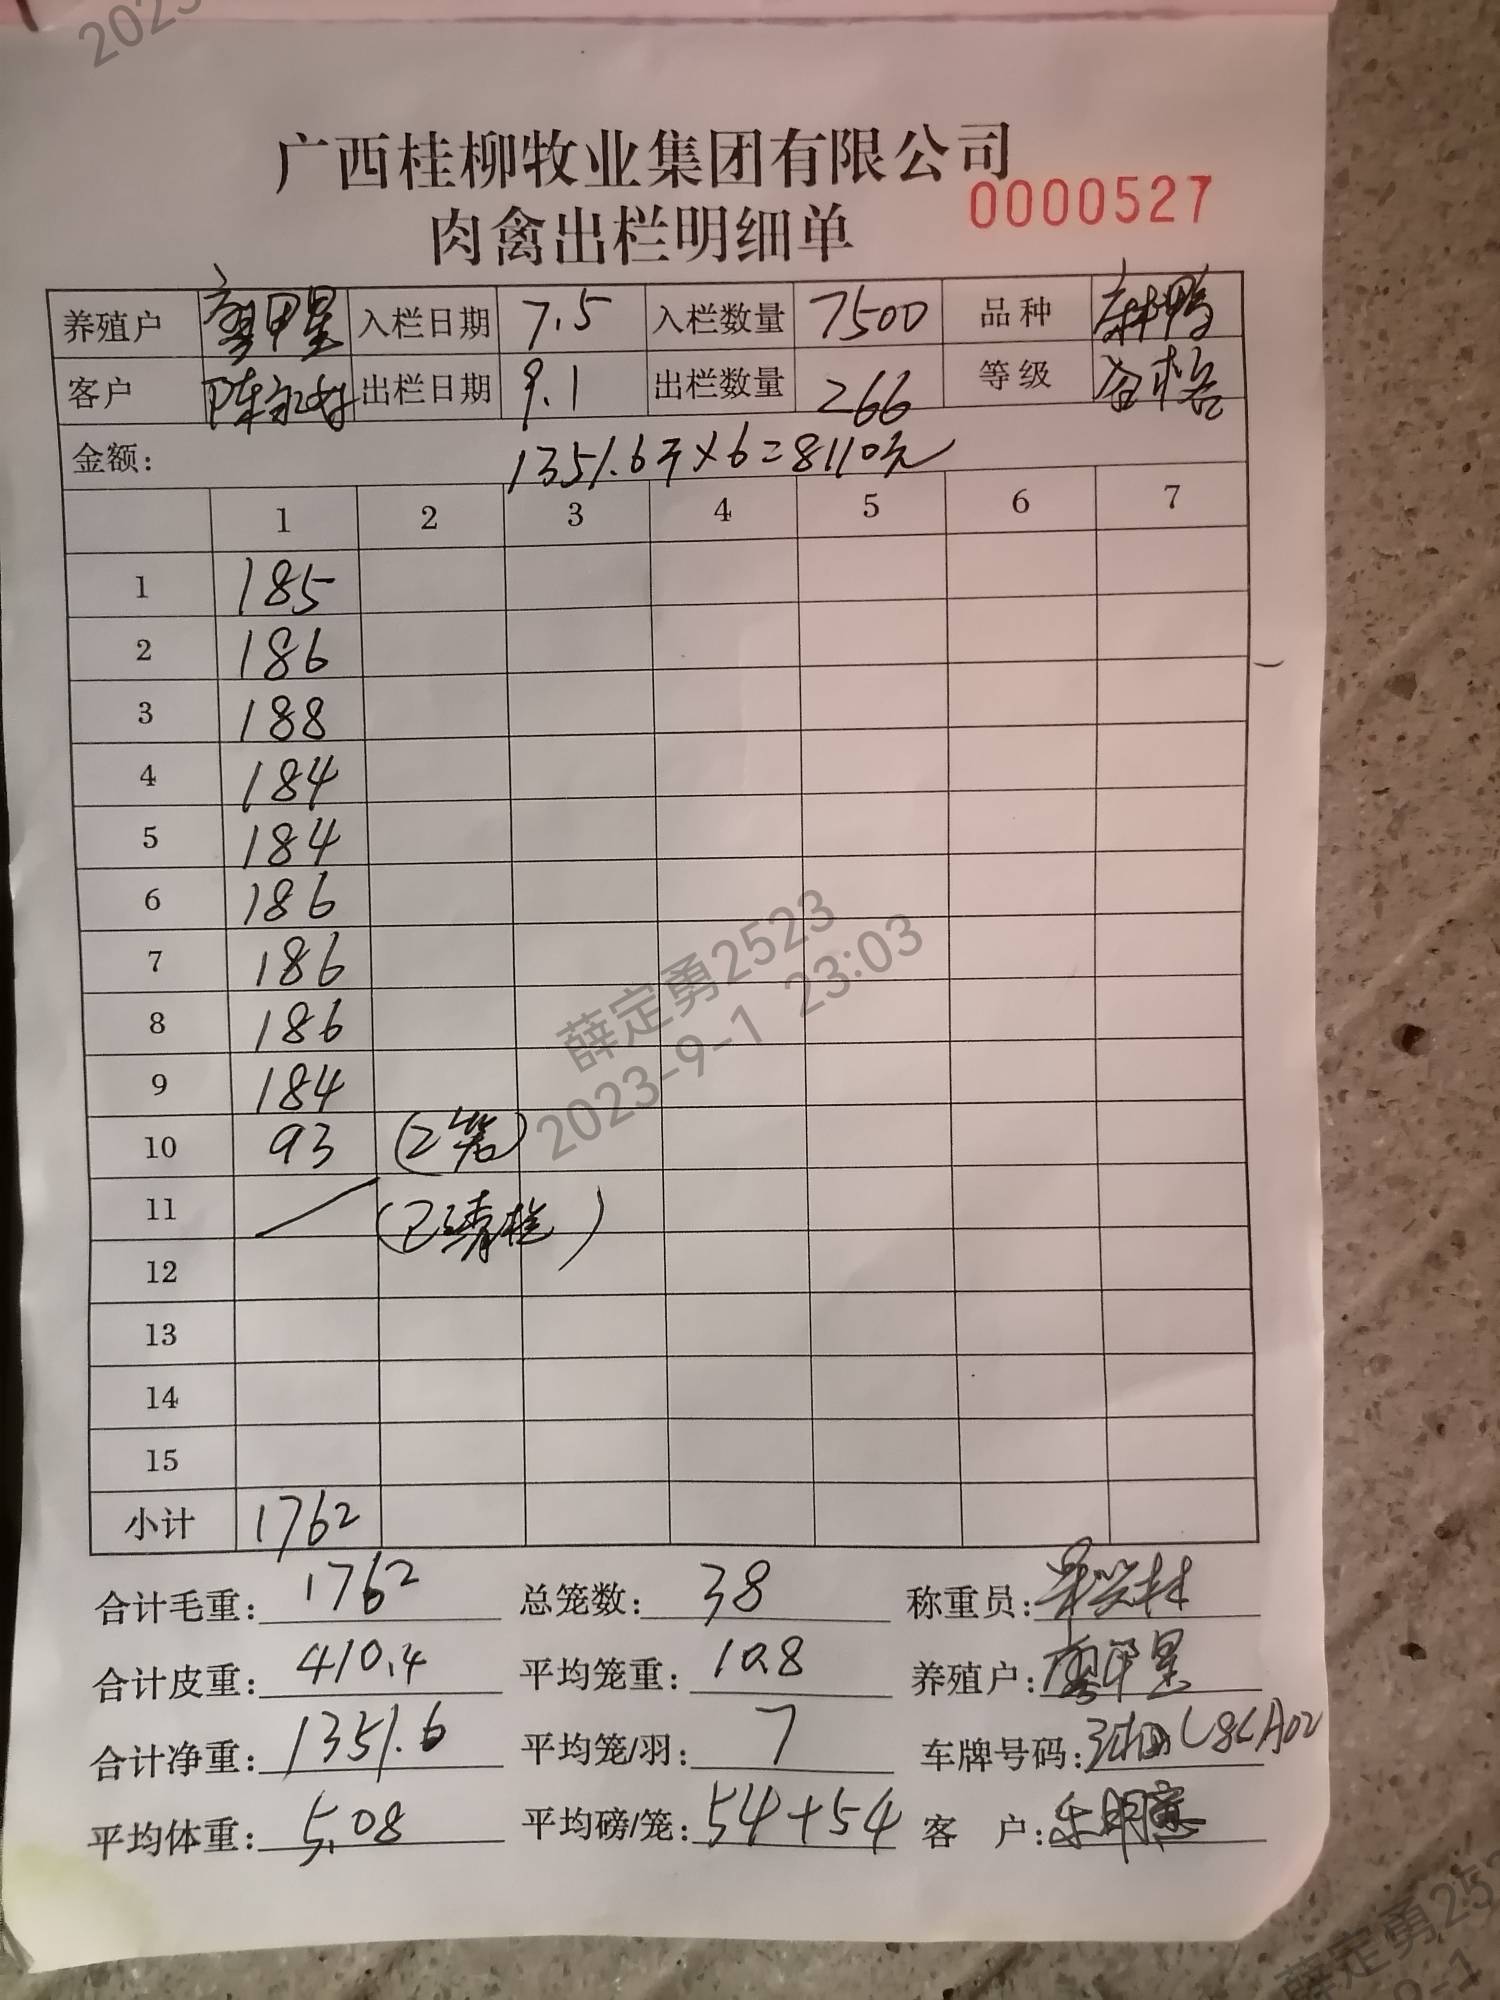 2023
广西桂柳牧业集团有限公司
肉禽出栏明细单
0000527
养殖户 廖甲星 入栏日期 7.5 入栏数量 7500 品种 麻鸭
客户 陈 出栏日期 9.1 出栏数量 266 等级 合格
金额: 1351.6斤×6=8110元
1 2 3 4 5 6 7
1 185
2 186
3 188
4 184
5 184
6 186
7 186
8 186
9 184
10 93 (2笼)
11 (已清栏)
12
13
14
15
小计 1762
薛定勇2523
2023-9-1 23:03
合计毛重: 1762 总笼数: 38 称重员:
合计皮重: 410.4 平均笼重: 10.8 养殖户: 廖甲星
合计净重: 1351.6 平均笼/羽: 7 车牌号码:
平均体重: 5.08 平均磅/笼: 54+54 客 户:
薛定勇252
9-1